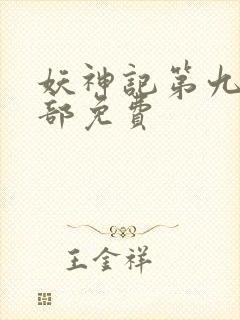 妖神記第九
部免費
王金祥